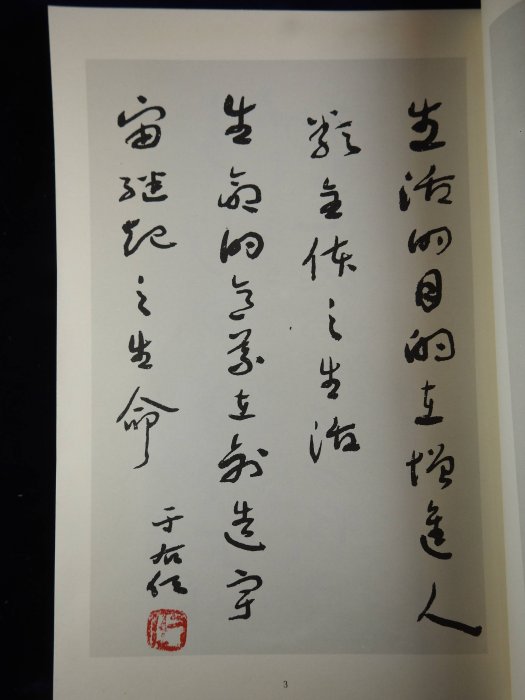 生活的目的在增進人
類全体之生活
生命的意義在創造宇
宙継起之生命
于右任
3